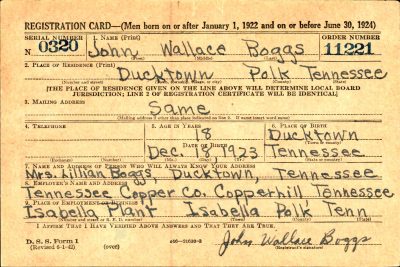 REGISTRATION CARD—(Men born on or after January 1, 1922 and on or before June 30, 1924)
SERIAL NUMBER 1. NAME (Print) ORDER NUMBER
N 0320 John Wallace Boggs 11221
(First) (Middle) (Last)
2. PLACE OF RESIDENCE (Print)
Ducktown Polk Tennessee
[THE PLACE OF RESIDENCE GIVEN ON THE LINE ABOVE WILL DETERMINE LOCAL BOARD
JURISDICTION; LINE 2 OF REGISTRATION CERTIFICATE WILL BE IDENTICAL]
3. MAILING ADDRESS
Same
(Mailing address if other than place indicated on line 2. If same insert word same)
4. TELEPHONE 5. AGE IN YEARS 6. PLACE OF BIRTH
18 Ducktown
DATE OF BIRTH (Town or county)
Dec. 13, 1923 Tennessee
(Exchange) (Number) (Mo.) (Day) (Yr.) (State or country)
7. NAME AND ADDRESS OF PERSON WHO WILL ALWAYS KNOW YOUR ADDRESS
Mrs. Lillian Boggs Ducktown, Tennessee
8. EMPLOYER'S NAME AND ADDRESS
Tennessee Copper Co. Copperhill Tennessee
9. PLACE OF EMPLOYMENT OR BUSINESS
Isabella Plant Isabella Polk Tenn
(Number and street or R. F. D. number) (Town) (County) (State)
I AFFIRM THAT I HAVE VERIFIED ABOVE ANSWERS AND THAT THEY ARE TRUE.
D. S. S. Form 1
(Revised 6-1-42) (over) John Wallace Boggs
(Registrant's signature)